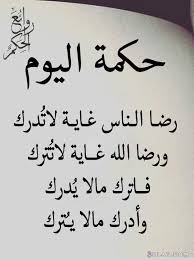 روائع الحكم
حكمة اليوم
رضا الناس غاية لاتُدرك
ورضا الله غاية لاتُترك
فاترك مالا يُدرك
وأدرك مالا يـُترك